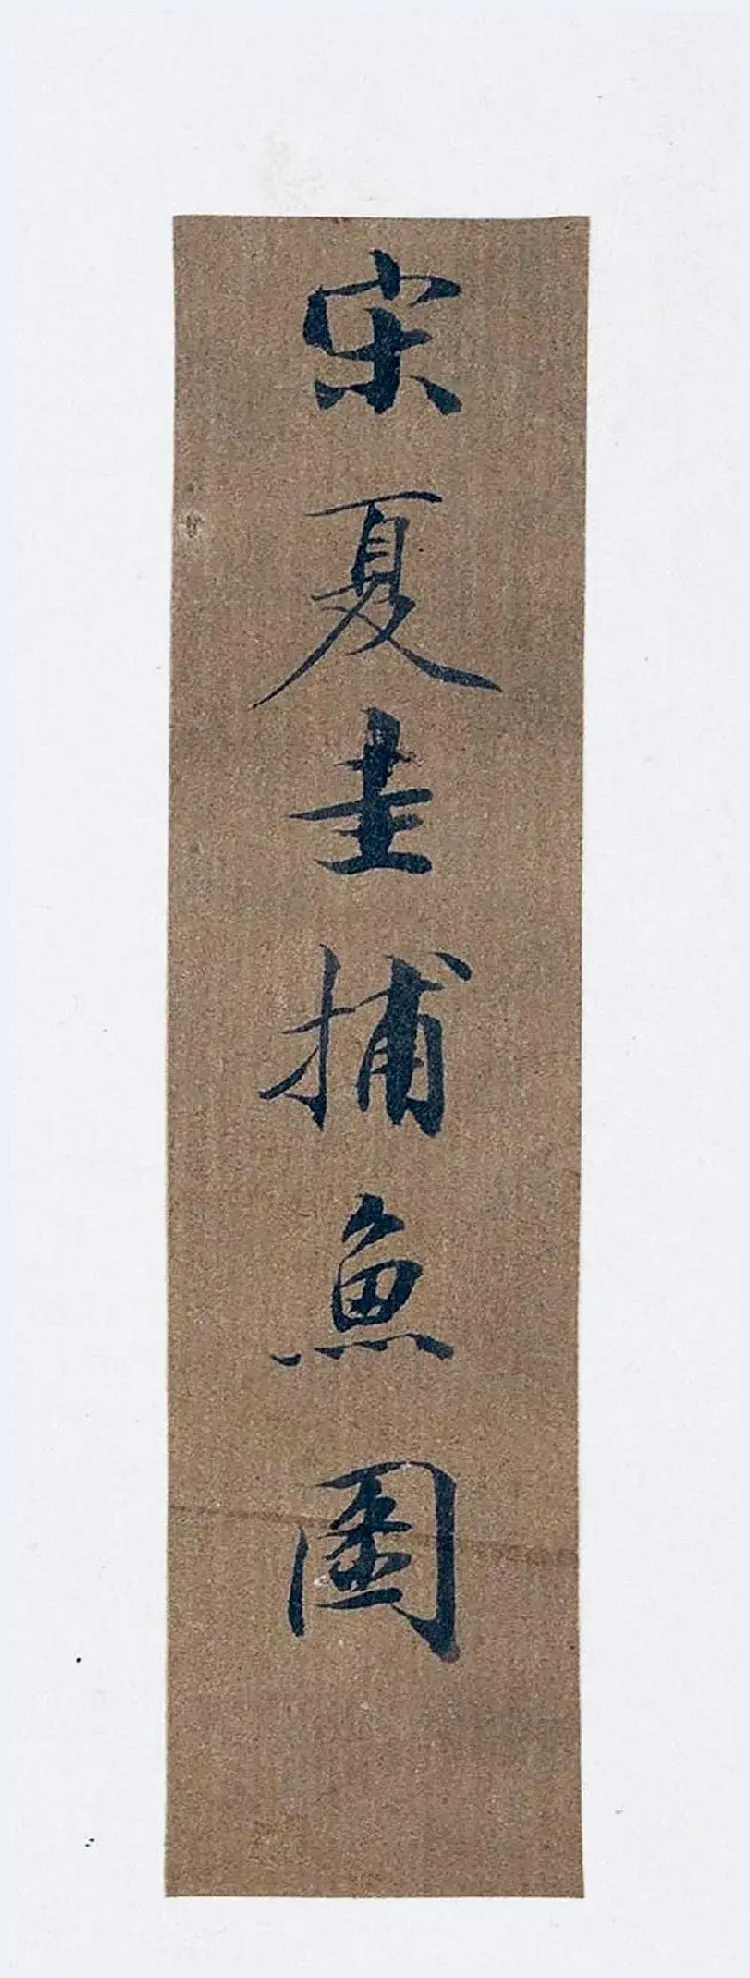 宋夏圭捕魚圖